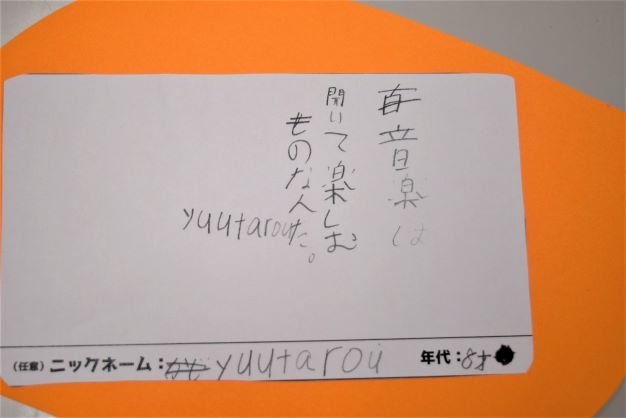 音楽は
開いて楽しむ
ものな人だ。
yuutarou
(任意) ニックネーム: yuutarou 年代:8才